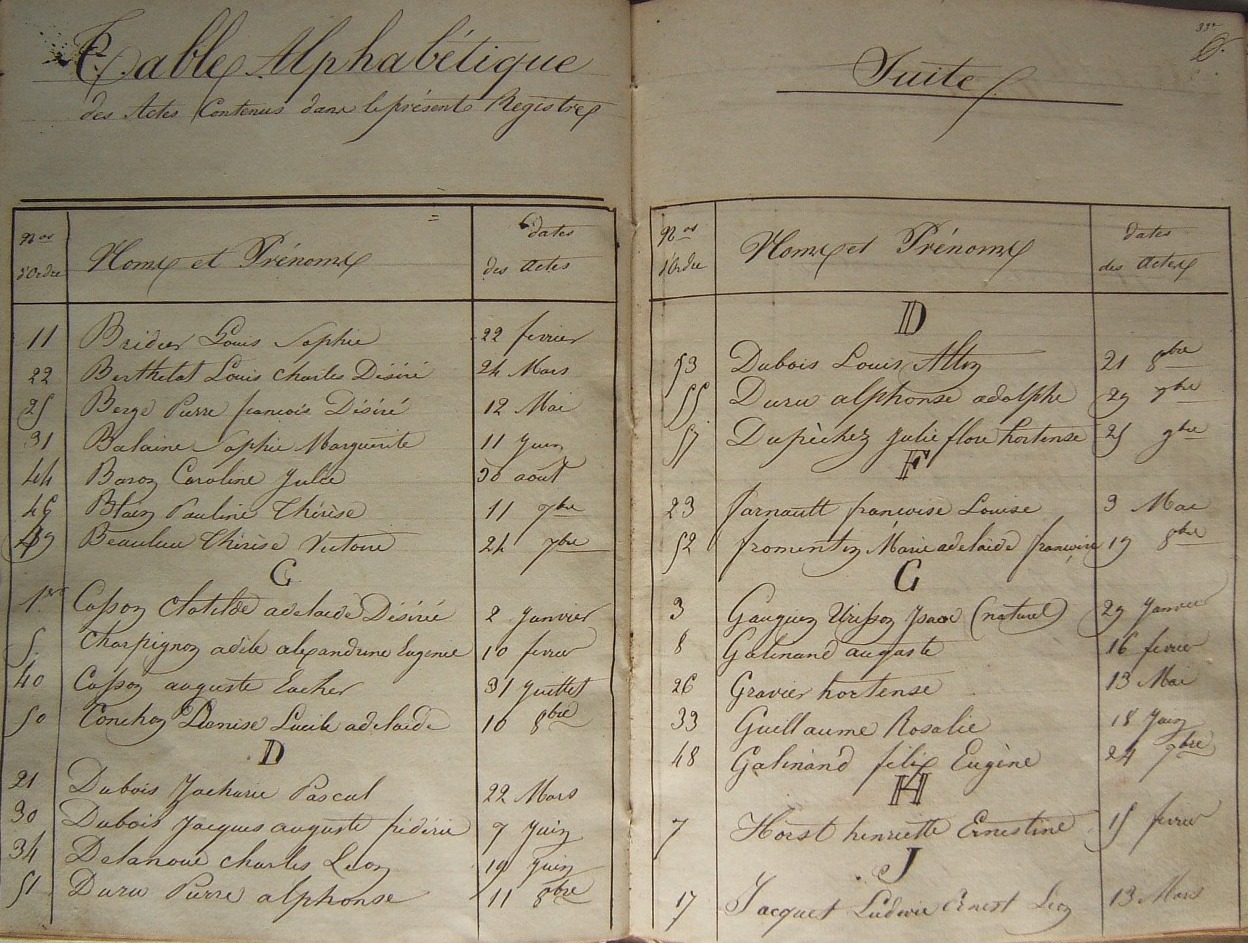 Table Alphabétique
des Actes Contenus dans le présent Registre
Nos d'Ordre Noms et Prénoms dates des Actes
11 Bridier Louis Sophie 22 fevrier
22 Berthelot Louis Charles Désiré 24 Mars
25 Bergé Pierre francois Désiré 12 Mai
31 Balaine Sophie Marguerite 11 Juin
44 Baron Caroline Julie 30 aout
46 Blain Pauline Thérèse 11 7bre
49 Beaulieu Thérèse Victoire 24 7bre
C
1er Casson Clotilde adelaide Désiré 2 Janvier
5. Charpignon adèle alexandrine Eugenie 10 fevrier
40 Casson auguste 31 Juillet
50 Conchon Denise Lucile adelaide 10 8bre
D
21 Dubois Zacharie Pascal 22 Mars
30 Dubois Jacques auguste fréderic 7 Juin
34 Delanoue charles Leon 19 Juin
51 Duru Pierre alphonse 11 8bre
Suite
Nos d'Ordre Noms et Prénoms dates des Actes
D
53 Dubois Louis 21 8bre
55 Duru alphonse adolphe 29 7bre
57 Dupèchez Julie flore hortense 25 9bre
F
23 farnault francoise Louise 3 Mai
52 fromentin Marie adelaide françoise 19 8bre
G
3 (naturel) 29 Janvier
8 Galinand auguste 16 fevrier
26 Gravier hortense 13 Mai
33 Guillaume Rosalie 18 Juin
48 Galinand félix Eugène 24 7bre
H
7 Horst henriette Ernestine 15 fevrier
J
17 Jacquet Ludovic Ernest Leon 13 Mars